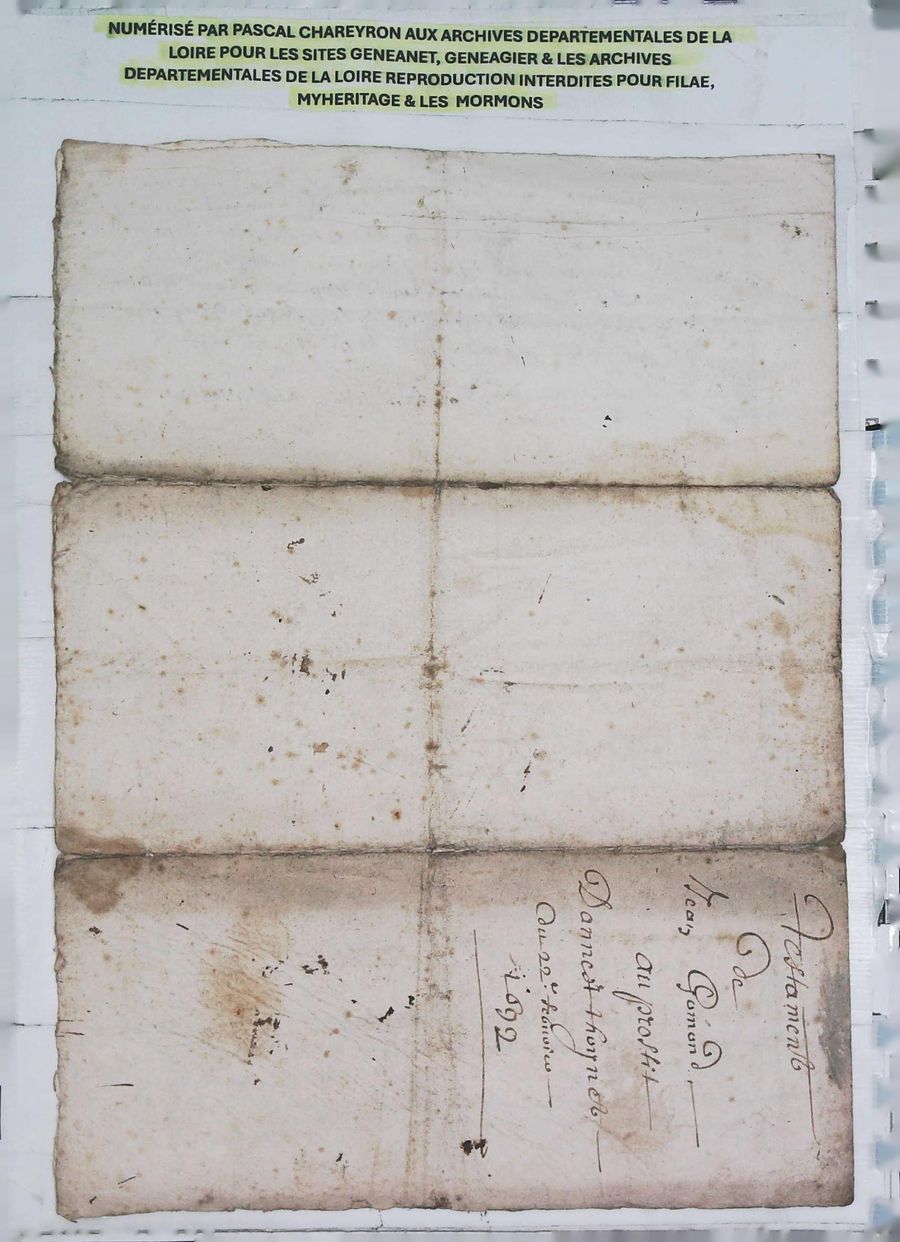 NUMÉRISÉ PAR PASCAL CHAREYRON AUX ARCHIVES DEPARTEMENTALES DE LA
LOIRE POUR LES SITES GENEANET, GENEAGIER & LES ARCHIVES
DEPARTEMENTALES DE LA LOIRE REPRODUCTION INTERDITES POUR FILAE,
MYHERITAGE & LES MORMONS
Testament
De
Jean Gomond
au proffit
du 22e
1692